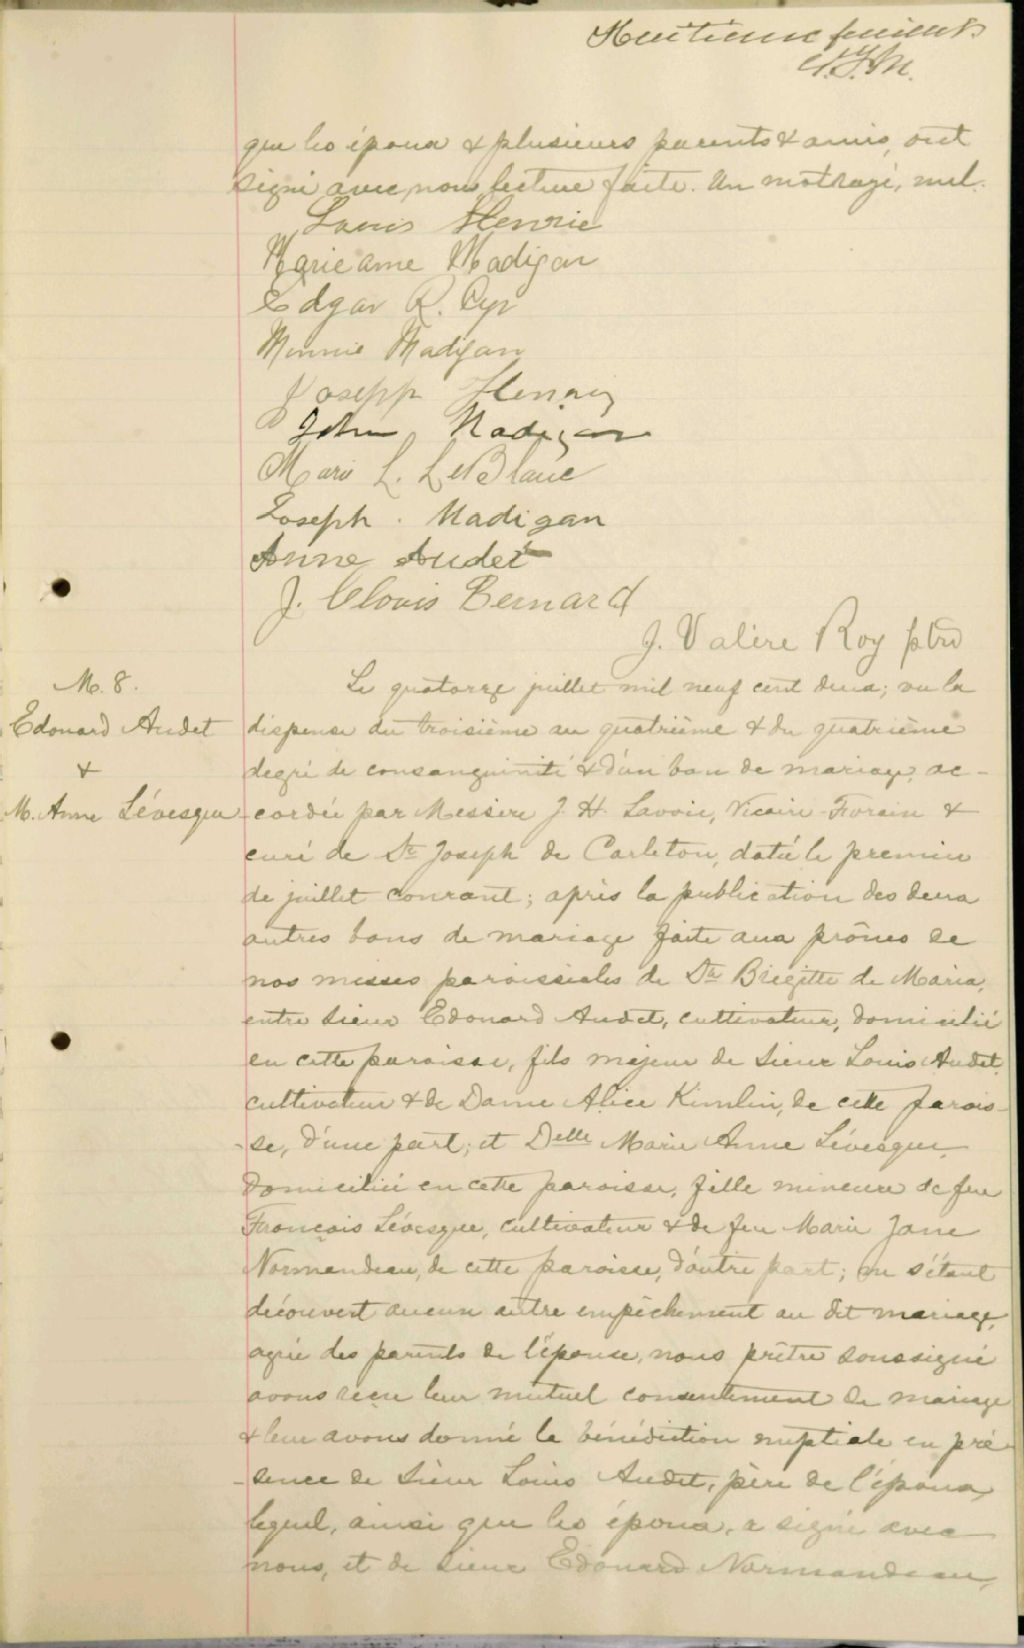 Huitième feuillet
que les époux & plusieurs parents & amis, ont
signé avec nous lecture faite. Un mot rayé, nul.
Louis Henrie
Marie anne Madigan
Edgar R. Cyr
Minnie Madigan
Joseph Henry
John Madigan
Marie L. LeBlanc
Joseph. Madigan
Anne Audet
J. Clovis Bernard
J. Valère Roy ptre
M. 8.
Edouard Audet
&
M. Anne Lévesque
Le quatorze juillet mil neuf cent deux; vu la
dispense du troisième au quatrième & du quatrième
degré de consanguinité & d'un ban de mariage, ac-
cordée par Messire J. H. Lavoie, Vicaire-Forain &
curé de St Joseph de Carleton, datée le premier
de juillet courant; après la publication des deux
autres bans de mariage faite aux prônes de
nos messes paroissiales de Ste Brigitte de Maria,
entre Sieur Edouard Audet, cultivateur, domicilié
en cette paroisse, fils majeur de Sieur Louis Audet,
cultivateur & de Dame Alice Kimlin, de cette parois-
-se, d'une part; et Delle Marie Anne Lévesque,
domiciliée en cette paroisse, fille mineure de feu
François Lévesque, cultivateur & de feu Marie Jane
Normandeau, de cette paroisse, d'autre part; ne s'étant
découvert aucun autre empêchement au dit mariage,
agréé des parents de l'épouse, nous prêtre soussigné
avons reçu leur mutuel consentement de mariage
& leur avons donné la bénédiction nuptiale en pré-
-sence de Sieur Louis Audet, père de l'époux,
lequel, ainsi que les époux, a signé avec
nous, et de Sieur Edouard Normandeau,